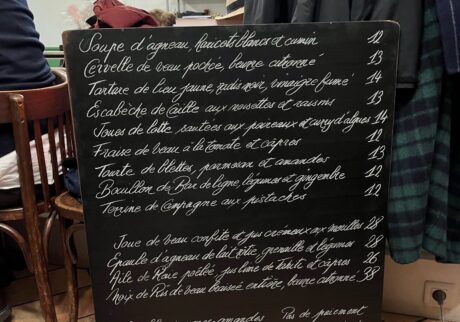 Soupe d'agneau, haricots blancs et cumin 12
Cervelle de veau pochée, beurre citronné 13
Tartare de lieu jaune, radis noir, vinaigre fumé 14
Escabèche de caille aux noisettes et raisins 13
Joues de lotte, sautées aux poireaux et curry d'algues 14
Fraise de veau à la tomate et câpres 12
Tourte de blettes, parmesan et amandes 13
Bouillon de Bar de ligne, légumes et gingembre 12
Terrine de campagne aux pistaches 12
Joue de veau confite et jus crémeux aux morilles 28
Epaule d'agneau de lait rôtie, grenaille et légumes 28
Aile de Raie pochée, jus lime de Tahiti et câpres 26
Noix de Ris de veau braisée entière, beurre citronné 38
amandes Pas de paiement